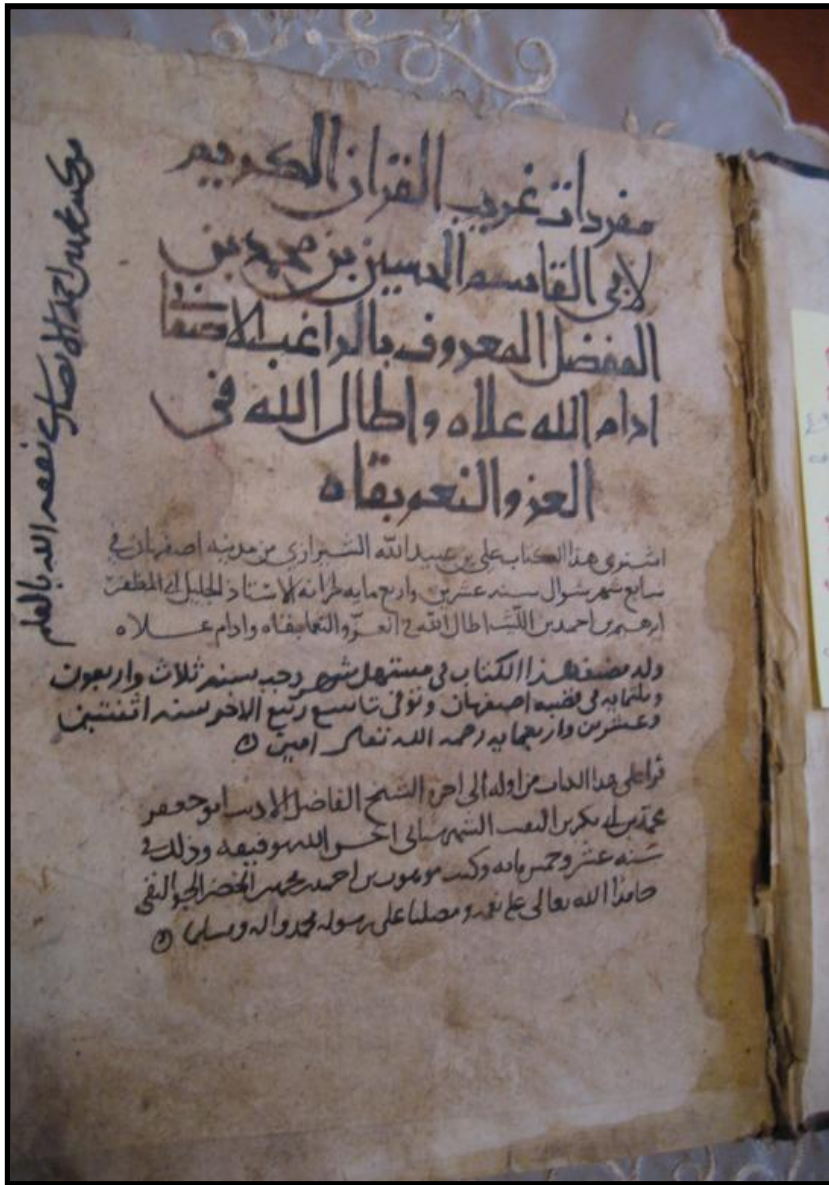 مفردات غريب القران الكريم
لابي القاسم الحسين بن محمد بن
المفضل المعروف بالراغب الاصفهاني
ادام الله علاه واطال الله في
العز والنعم بقاه
اشترى هذا الكتاب علي بن عبيد الله الشيرازي من مدينه اصفهان في
سابع شهر شوال سنه عشرين واربع مايه لخزانه الاستاذ الجليل ابي المظفر
ابرهيم بن احمد بن الليث اطال الله في العز والنعما بقاه وادام علاه
ولد مصنف هذا الكتاب في مستهل شهر رجب سنه ثلاث واربعون
وثلثمايه في قصبه اصفهان وتوفى تاسع ربيع الاخر سنه اثنتين
وعشرين واربعمايه رحمه الله تعالى امين
قرا علي هذا الكتاب من اوله الى اخره الشيخ الفاضل الاديب ابو جعفر
محمد بن ابي بكر بن النقيب الشهرستاني احسن الله توفيقه وذلك في
سنه عشر وخمس مائه وكتب موهوب بن احمد بن محمد بن الخضر الجواليقي
حامدا الله تعالى على نعمه ومصليا على رسوله محمد واله ومسلما
محمد بن احمد الانصاري نفعه الله بالعلم